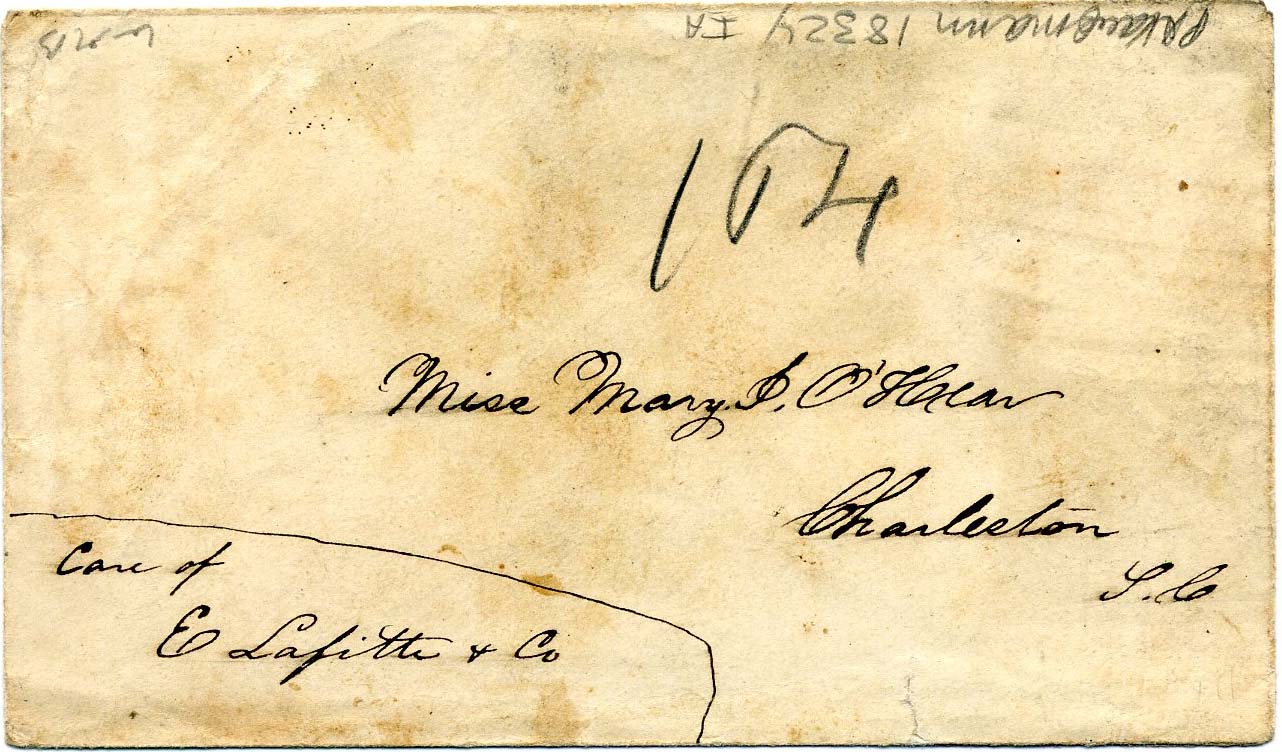 18324 IA
Miss Mary J. O'Hear
Charleston
S. C
Care of
E Lafitte & Co